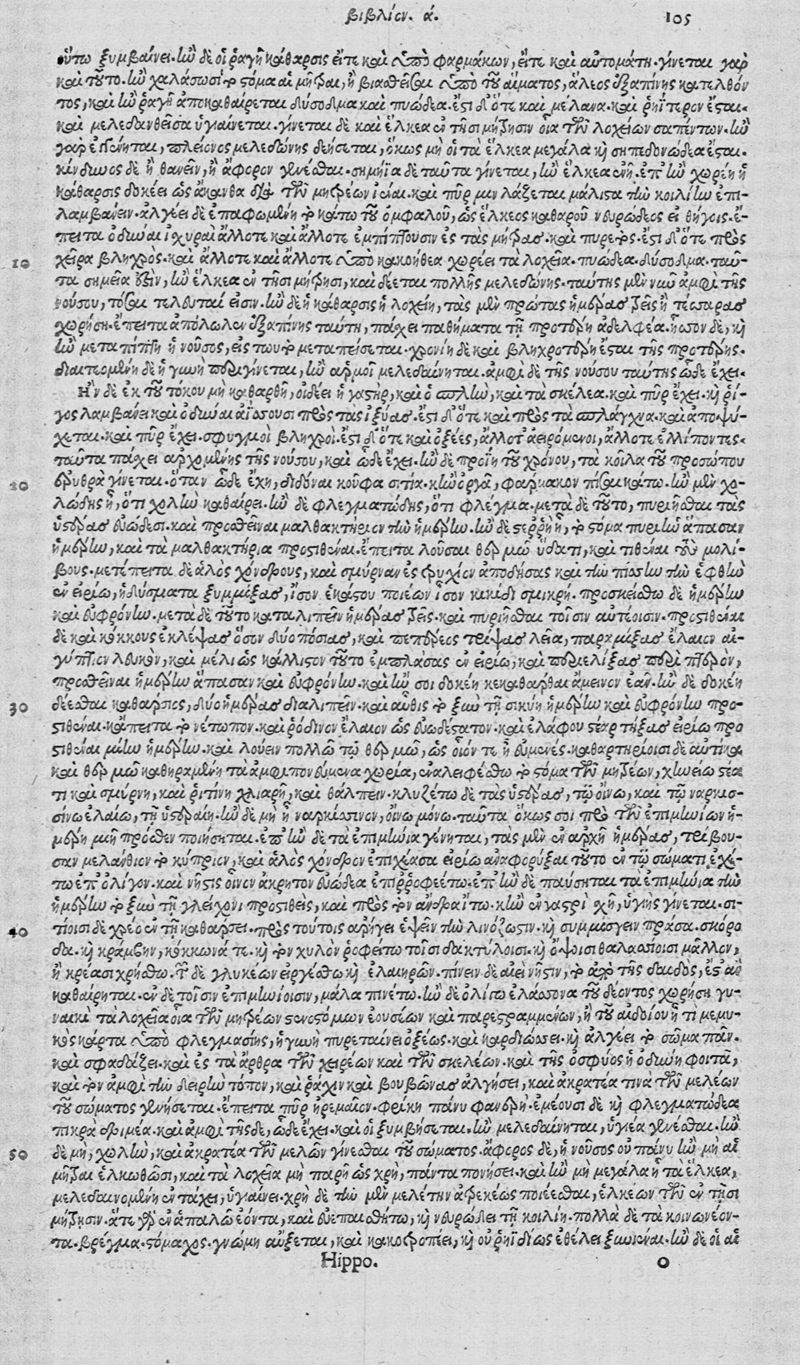 βιβλίον. ά. 105
οὕτω ξυμβαίνει. ἢν δὲ οἱ ῥαγῇ κάθαρσις εἴτε καὶ ὑπὸ φαρμάκων, εἴτε καὶ αὐτομάτη. γίνεται γὰρ
καὶ τοῦτο. ἢν χαλάσωσι τὸ στόμα αἱ μῆτραι, ἢ βιασθεῖσαι ὑπὸ τοῦ αἵματος, ἁλέος ἐξαπίνης κατελθόν
τος, καὶ ἢν ῥαγῇ ἀποκαθαίρεται δύσοδμα καὶ πυώδεα. ἔστι δ' ὅτε καὶ μέλανα. καὶ ῥηΐτερον ἔσται.
καὶ μελεδανθεῖσα ὑγιαίνεται. γίνεται δὲ καὶ ἕλκεα ἐν τῇσι μήτρῃσιν οἷα τῶν λοχείων σαπέντων. ἢν
γὰρ ἐπιγίνηται, πλείονος μελεδώνης δεήσεται, ὅκως μὴ οἱ τὰ ἕλκεα μεγάλα καὶ σηπεδονώδεα ἔσται.
κίνδυνος δὲ ἢ θανεῖν, ἢ ἄφορον γενέσθαι. σημήϊα δὲ ταῦτα γίνεται, ἢν ἕλκεα ἐνῇ. ἐπ' ἢν χωρέῃ ἡ
κάθαρσις δοκέει ὡς ἄκανθα διὰ τῶν μητρέων ἰέναι. καὶ πῦρ μιν λάζεται μάλιστα τὴν κοιλίην ἐπι-
λαμβάνειν. ἀλγέει δὲ ἐπαφωμένη τὸ κάτω τοῦ ὀμφαλοῦ, ὡς ἕλκεος καθαροῦ νευρώδεος εἰ θήγοις. ἔ-
πειτα ὀδύναι ἰσχυραὶ ἄλλοτε καὶ ἄλλοτε ἐμπίπτουσιν ἐς τὰς μήτρας. καὶ πυρετός. ἔστι δ' ὅτε πρὸς
10 χεῖρα βληχρός. καὶ ἄλλοτε καὶ ἄλλοτε ὑπὸ κακοήθεα χωρέει τὰ λοχεῖα. πυώδεα. δύσοδμα. ταῦ-
τα σημεῖα ἐστιν, ἢν ἕλκεα ἐν τῇσι μήτρῃσι, καὶ δέεται πολλῆς μελεδώνης. ταύτης μὲν νῦν ἀμφὶ τῆς
νούσου, τόσαι τελευταί εἰσιν. ἢν δὲ ἡ κάθαρσις ἡ λοχείη, τὰς μὲν πρώτας ἡμέρας τρεῖς ἢ τέσσαρας
χωρήσῃ. ἔπειτα ἀπόλωλεν ἐξαπίνης ταύτῃ, πάσχει παθήματα τῇ προτέρῃ ἀδελφέα. ἧσσον δέ, καὶ
ἢν μεταπίπτῃ ἡ νοῦσος, εἰς τωυτὸ μεταπείσεται. χρονίη δὲ καὶ βληχροτέρη ἔσται τῆς προτέρης.
διαιτωμένη δὲ ἡ γυνὴ περιγίνεται, ἢν ἁρμοῖ μελεδαίνηται. ἀμφὶ δὲ τῆς νούσου ταύτης ὧδε ἔχει.
Ἢν δὲ ἐκ τοῦ τόκου μὴ καθαρθῇ, οἰδέει ἡ γαστήρ, καὶ ὁ σπλήν, καὶ τὰ σκέλεα. καὶ πῦρ ἔχει. καὶ ῥῖ-
γος λαμβάνει καὶ ὀδύναι ἀΐσσουσι πρὸς τὰς ἰξύας. ἔστι δ' ὅτε καὶ πρὸς τὰ σπλάγχνα. καὶ ἀποψύ-
χεται. καὶ πῦρ ἔχει. σφυγμοὶ βληχροί. ἔστι δ' ὅτε καὶ ὀξέες, ἄλλοτ' ἀειρόμενοι, ἄλλοτε ἐλλίποντες.
ταῦτα πάσχει ἀρχομένης τῆς νούσου, καὶ ὧδε ἔχει. ἢν δὲ προΐῃ τοῦ χρόνου, τὰ κοῖλα τοῦ προσώπου
20 ἐρυθρὰ γίνεται. ὅταν ὧδε ἔχῃ, διδόναι κοῦφα σιτία. κἢν ὀργᾷ, φάρμακον πῖσαι κάτω. ἢν μὲν χο-
λώδης ᾖ, ὅτι χολὴν καθαίρει. ἢν δὲ φλεγματώδης, ὅτι φλέγμα. μετὰ δὲ τοῦτο, πυριῆσθαι τὰς
ὑστέρας εὐώδεσι. καὶ προσθεῖναι μαλθακτήριον τὴν ἡμέρην. ἢν δὲ στερρὴ ᾖ, τὸ στόμα πυριῆν ἅπασαν
ἡμέρην, καὶ τὰ μαλθακτήρια προστιθέναι. ἔπειτα λοῦσαι θερμῷ ὕδατι, καὶ τιθέναι τοὺς μολί-
βους. μετέπειτα δὲ ἁλὸς χόνδρους, καὶ σμύρναν ἐς τρυχίον ἀποδήσας καὶ τὴν πίσσαν τὴν ἑφθὴν
ἐν εἰρίῳ, ἡδύσματα ξυμμίξας, ἴσον ἑκάστου ποιέων ἴσον κικίδι σμικρῇ. προσκείσθω δὲ ἡμέρην
καὶ εὐφρόνην. μετὰ δὲ τοῦτο καταλιπεῖν ἡμέρας τρεῖς. καὶ πυριῆσθαι τοῖσιν αὐτέοισιν. προστιθέναι
δὲ καὶ κόκκους ἐκλέψας ὅσον δύο πόσιας, καὶ πεπέρεος τρίψας λεῖα, παραμίξας ἔλαιον αἰ-
γύπτιον λευκόν, καὶ μέλι ὡς κάλλιστον τοῦτο ἐμπλάσας ἐν εἰρίῳ, καὶ περιελίξας περὶ πτερόν,
προσθεῖναι ἡμέρην ἅπασαν καὶ εὐφρόνην. καὶ ἤν σοι δοκέῃ κεκαθάρθαι ἄμεινον ἐᾶν. ἢν δὲ δοκέῃ
30 δέεσθαι καθάρσιος, δύο ἡμέρας διαλιπεῖν. καὶ αὖθις τὸ ξὺν τῇ σικύῃ ἡμέρην καὶ εὐφρόνην προσ-
τιθέναι. κἄπειτα τὸ νέτωπον. καὶ ῥόδινον ἔλαιον ὡς εὐωδέστατον. καὶ ἐλάφου στέαρ τήξας εἰρίῳ προσ
τιθέναι μίην ἡμέρην. καὶ λούειν πολλῷ τῷ θερμῷ, ὡς οἷόν τε ᾖ εὐμενές. καθαρτηρίοισι δὲ αὐτίκα
καὶ θερμῷ καθηραμένη τὰ ἀμφιπονεύμενα χωρία, ἐναλειφέσθω τὸ στόμα τῶν μητρέων, χηνείῳ στέα
τι καὶ σμύρνῃ, καὶ ῥητίνῃ χλιαρῇ, καὶ θάλπειν. κλυζέτω δὲ τὰς ὑστέρας, τῷ οἴνῳ, καὶ τῷ ναρκισ-
σίνῳ ἐλαίῳ, τῇ ὑστεραίῃ. ἢν δὲ μὴ ᾖ ναρκίσσινον, οἴνῳ μόνῳ. ταῦτα ὅκως σοι πρὸ τῶν ἐπιμηνίων ἡ-
μέρῃ μιῇ πρόσθεν ποιήσηται. ἐπὶ ἢν δὲ τὰ ἐπιμήνια γένηται, τὰς μὲν ἐν ἀρχῇ ἡμέρας, τρίβου-
σαν μελάνθιον τὸ κύπριον, καὶ ἁλὸς χόνδρον ἐπιχέασα εἰρίῳ ἀναφορύξαι τοῦτο ἐν τῷ σώματι ἐχέ-
τω ἐπ' ὀλίγον. καὶ νῆστις οἶνον ἄκρητον εὐώδεα ἐπιρροφεέτω. ἐπ' ἢν δὲ παύσηται τὰ ἐπιμήνια τὴν
ἡμέρην τὸ ξὺν τῇ γλείχονι προστιθείς, καὶ πρὸς τὸν ἄνδρα ἴτω. κἢν ἐν γαστρὶ σχῇ, ὑγιὴς γίνεται. σι-
40 τίοισι δὲ χρέο ἐν τῇ καθάρσει. πρὸς τούτοις ἀρήγει ἕψειν τὴν λινόζωστιν. καὶ συμμίσγειν πράσα. σκόρο
δα. καὶ κράμβην, κόκκωνά τε. καὶ τὸν χυλὸν ῥοφείτω τοῖσι δακτύλοισι. καὶ ὄψοισι θαλασσίοισι μᾶλλον,
ἢ κρέασι χρήσθω. τῶν δὲ γλυκέων εἰργέσθω καὶ ἐλαιηρῶν. πίνειν δὲ αἰεὶ νῆστιν, τὸ ἀπὸ τῆς δαιδός, ἔς τ' ἂν
καθαίρηται. ἐν δὲ τοῖσιν ἐπιμηνίοισιν, μάλα πινέτω. ἢν δὲ ὀλίγῳ ἐλάσσονα τοῦ δέοντος χωρήσῃ γυ-
ναικὶ τὰ λοχεῖα οἷα τῶν μητρέων στενοστόμων ἐουσέων καὶ παρεστραμμένων, ἢ τοῦ αἰδοίου ᾖ τι μεμυ-
κὸς κάρτα ὑπὸ φλεγμασίης, ἡ γυνὴ πυρεταίνει ὀξέως. καὶ καρδιώσσει. καὶ ἀλγέει τὸ σῶμα πᾶν.
καὶ σφαδάζει. καὶ ἐς τὰ ἄρθρα τῶν χειρέων καὶ τῶν σκελέων. καὶ τῆς ὀσφύος ἡ ὀδύνη φοιτᾷ,
καὶ τὸν ἀμφὶ τὴν δειρὴν τόπον, καὶ ῥάχιν καὶ βουβῶνας ἀλγήσει, καὶ ἀκρατία τινὰ τῶν μελέων
τοῦ σώματος γενήσεται. ἔπειτα πῦρ ἠρεμαῖον. φρίκη πάνυ φανερή. ἐμέουσι δὲ καὶ φλεγματώδεα
πικρὰ δριμέα. καὶ ἀμφὶ τῆς δέ, ὧδε ἔχει. καὶ οἱ ξυμβήσεται. ἢν μελεδαίνηται, ὑγιέα γενέσθαι. ἢν
50 δὲ μή, χωλήν, καὶ ἀκρατέα τῶν μελῶν γίνεσθαι τοῦ σώματος. ἄφορος δέ, ἡ νοῦσος οὐ πάνυ ἢν μὴ αἱ
μῆτραι ἑλκωθῶσι, καὶ τὰ λοχεῖα μὴ παρῇ ὡς χρή, πάντα πονήσει. καὶ ἢν μὴ μεγάλα ᾖ τὰ ἕλκεα,
μελεδαινομένη ἐν τάχει, ὑγιαίνει. χρὴ δὲ τὴν μὲν μελέτην ἀτρεκέως ποιέεσθαι, ἑλκέων τῶν ἐν τῇσι
μήτρῃσιν. ἅτε γὰρ ἐν ἁπαλῷ ἐόντα, καὶ εὐεπαισθήτῳ, καὶ νευρώδει τῇ κοιλίῃ. πολλὰ δὲ τὰ κοινωνέον-
τα. βρέγμα. στόμαχος. γνώμη αὔξεται, καὶ κακοτροπέει, καὶ οὐ ῥηϊδίως ἐθέλει ξυνιέναι. ἢν δὲ οἱ αἱ
Hippo. O